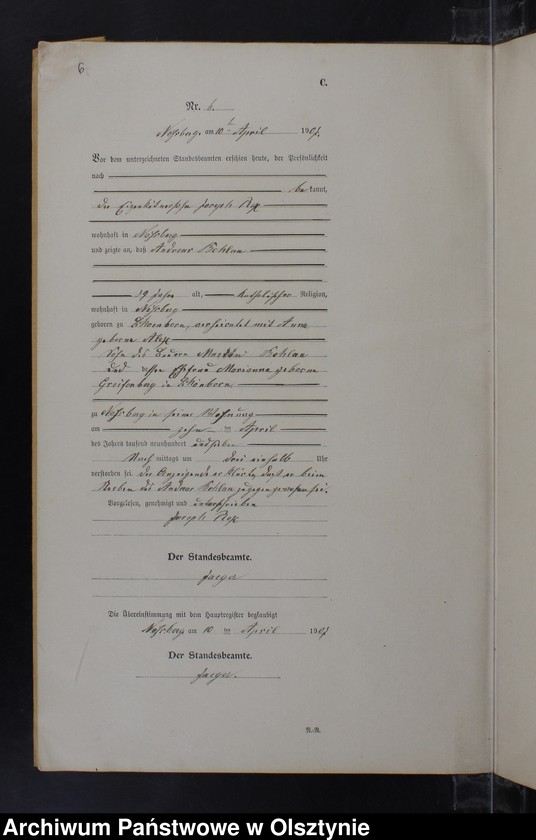 6
C.
Nr. 6.
Noßberg, am 10 ten April 1907.
Vor dem unterzeichneten Standesbeamten erschien heute, der Persönlichkeit
nach
be kannt,
der Joseph
wohnhaft in Noßberg
und zeigte an, daß Andreas Kohlau
Jahre alt, katholischer Religion,
wohnhaft in Noßberg
geboren zu Schönborn, verheiratet mit Anna
geborne
Sohn des Bauern Martin Kohlau
und Ehefrau Marianna geborne
Greifenberg in Schönborn
zu Noßberg in seiner Wohnung
am zehn ten April
des Jahres tausend neunhundert und sieben
Nach mittags um drei einhalb Uhr
verstorben sei. Der Anzeigende erklärte, daß er beim
Sterben des Andreas Kohlau zugegen gewesen sei.
Vorgelesen, genehmigt und unterschrieben
Joseph
Der Standesbeamte.
Jaeger
Die Übereinstimmung mit dem Hauptregister beglaubigt
Noßberg am 10 ten April 1907
Der Standesbeamte.
Jaeger.
Archiwum Państwowe w Olsztynie